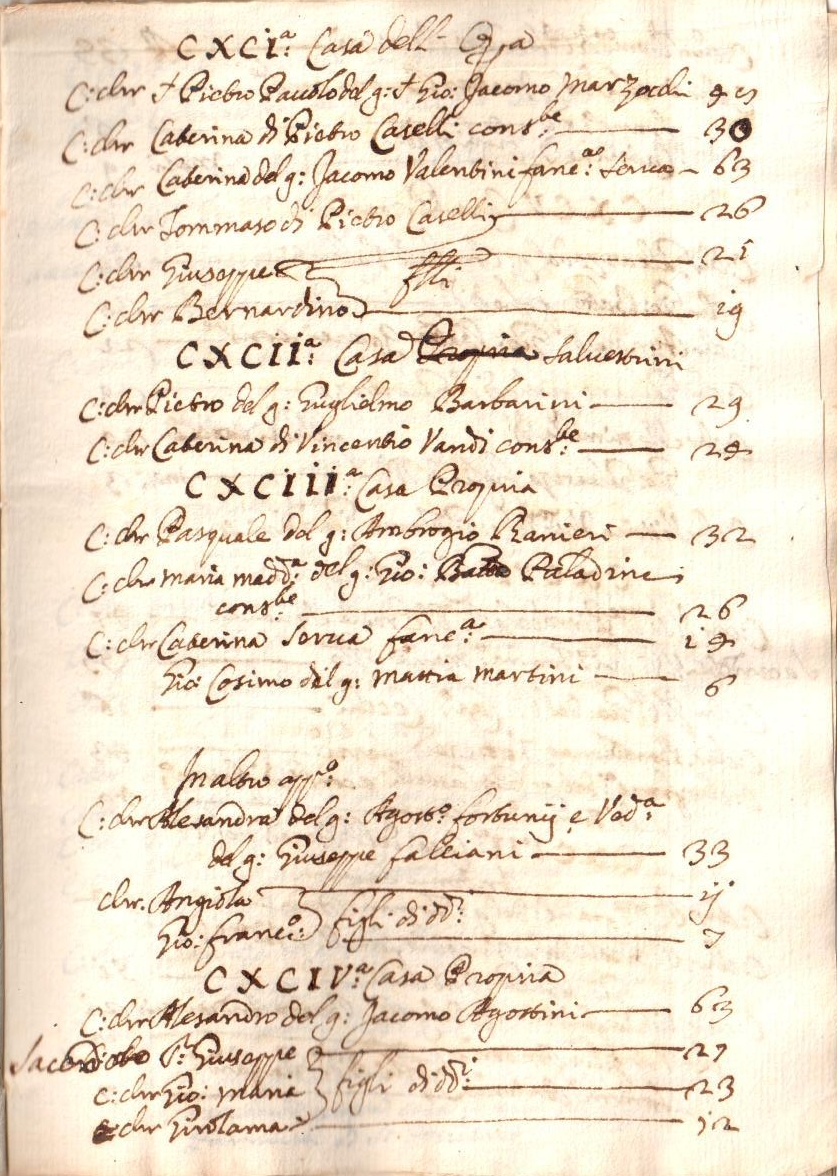 CXCIª: Casa dell' Opa
C: chr † Pietro Pauolo del q: † Gio: Jacomo Marzocchi 45
C: chr Caterina di Pietro Caselli cons.be 30
C: chr Caterina del q: Jacomo Valentini fanc.a serva 63
C: chr Tommaso di Pietro Caselli 26
C: chr Giuseppe flli 21
C: chr Bernardino 19
CXCIIª: Casa Propria Salvestrini
C: chr Pietro del q: Guglielmo Barbarini 29
C: chr Caterina di Vincentio Vandi cons.be 24
CXCIIIª: Casa Propria
C: chr Pasquale del q: Ambrogio Ranieri 32
C: chr Maria Madd.a del q: Gio: Batta Paladini
cons.be 26
C: chr Caterina serva fanc.a 14
Gio: Cosimo del q: Mattia Martini 6
In altro app.o:
C: chr Alesandra del q: Agost.o fortunij e Ved.a
del q: Giuseppe falciani 33
chr. Angiola figli di dd.i 11
Gio: franc.o: 7
CXCIVª Casa Propria
C: chr Alesandro del q: Jacomo Agostini 63
Sacerdote P. Giuseppe 27
C: chr Gio: Maria figli di dd.i 23
chr Girolama 12